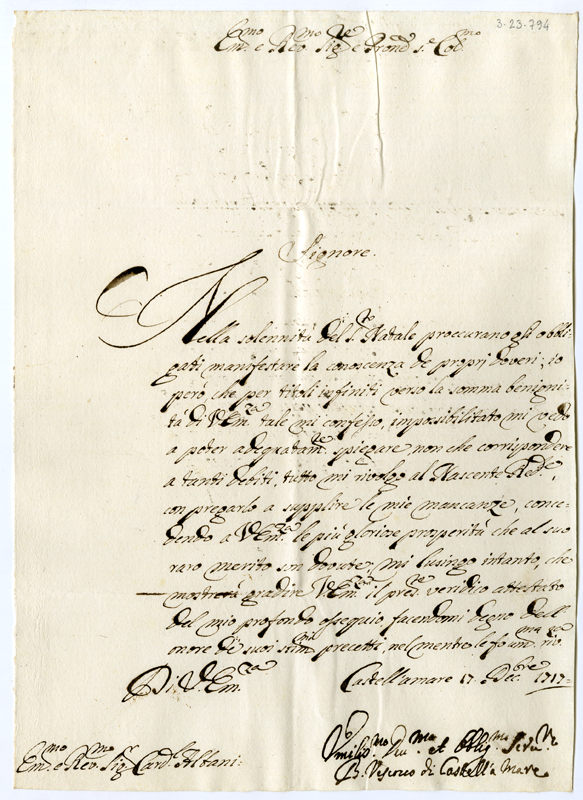 3-23-794
Em.mo e Rev.mo Sig.re e Pron.e s.e Col.mo
Signore.
Nella solennità del S.to Natale proccurano gli obbli-
gati manifestare la conoscenza de propri doveri; io
però che per titoli infiniti verso la somma benigni-
tà di V. Em.za tale mi confesso, impossibilitato mi vedo
a poter adeguatam.te spiegare non che corrispondere
a tanti debiti, tutto mi rivolgo al Nascente Red.re,
con pregarlo a supplire le mie mancanze, conce-
dendo a V. Em.za le più gloriose prosperità che al suo
raro merito son dovute; mi lusingo intanto, che
mostrerà gradire V. Em.za il pres.te veridico attestato
del mio profondo ossequio, facendomi degno dell'
onore de suoi stim.mi precetti, nel mentre le fo um.ma riv.za
Di V. Em.za
Castell'amare 17 Dec.bre 1717=
Umiliss.mo Dev.mo et Oblig.mo Serv.re
B. Vescovo di Castell'a Mare
Em.mo e Rev.mo Sig.r Card. Albani: